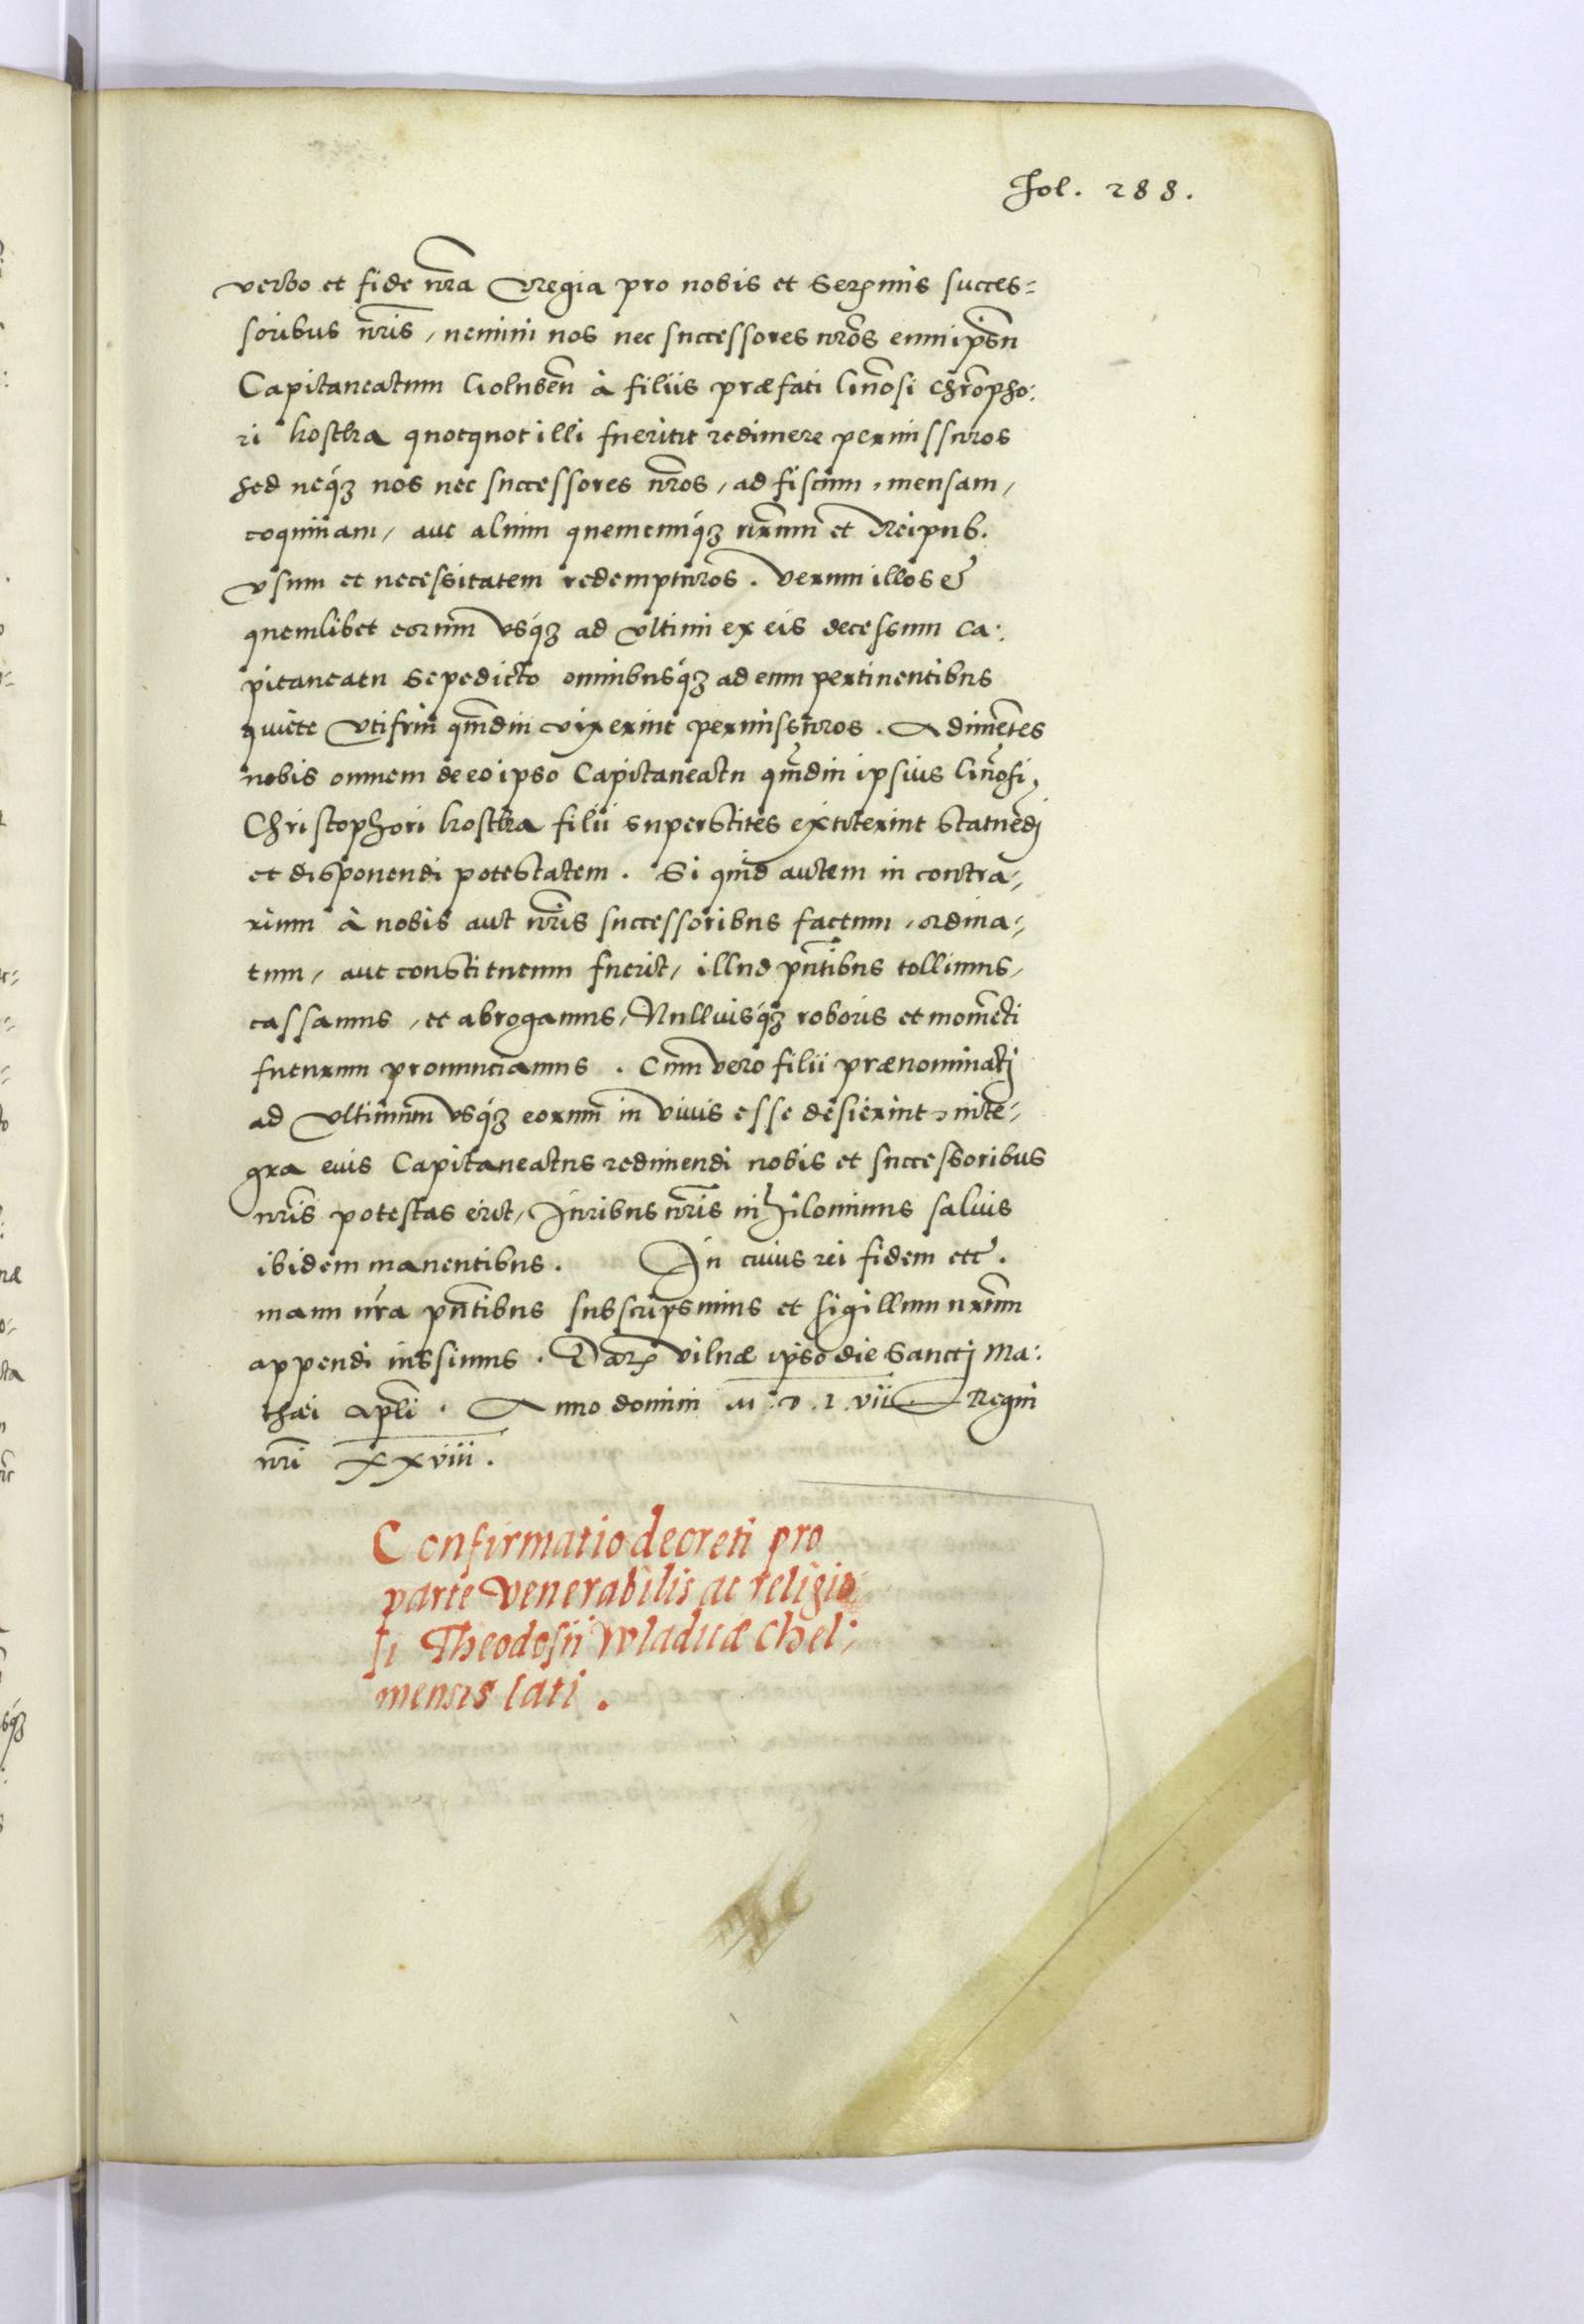 Fol. 288.
verbo et fide nr̃a Regia pro nobis et Serꝫmis succes=
soribus nr̃is, nemini nos nec successores nr̃os eum ip̃sn
Capitaneatum Golubeñ à filiis præfati Gn̄osi Chr̃opho:
ri Kostka quotquot illi fuerint redimere permissuros
sed neqꝫ nos nec successores nr̃os, ad fiscum, mensam,
coquinam, aut alium quemcunqꝫ nr̃um et Reipub.
Vsum et necessitatem redempturos. Verum illos et
quemlibet eorum vsqꝫ ad vltimi ex eis decessum Ca:
pitaneatu sepedicto omnibusqꝫ ad eum pertinentibus
quiete Vtifrui qm̄diu vixerint permissuros. Adimeñtes
nobis omnem de eo ipso Capitaneatu qm̄diu ipsius Gn̄osi,
Christophori Kostka filii superstites extiterint statueñdj
et disponendi potestatem. Si quid autem in contra,
rium à nobis aut nr̃is successoribus factum, ordina,
tum, aut constitutum fuerit, illud pñtibus tollimus,
cassamus, et abrogamus, Nulliusqꝫ roboris et momẽti
futurum pronunciamus. Cum vero filii prænominatj
ad Vltimum vsqꝫ eorum in viuis esse desierint, inte,
gra eius Capitaneatus redimendi nobis et successoribus
nr̃is potestas erit, Iuribus nr̃is nihilominus saluis
ibidem manentibus. In cuius rei fidem etc.
manu nr̃a pñtibus subscripsimus et sigillum nr̃um
appendi iussimus. Datꝫ Vilnæ ipso die Sanctj Ma:
thæi apl̃i. Anno domini M.D.L.vii Regni
nr̃i xxviii.
Confirmatio decreti pro
parte Venerabilis ac religio
si Theodosii Wladicæ Chel:
mensis lati.